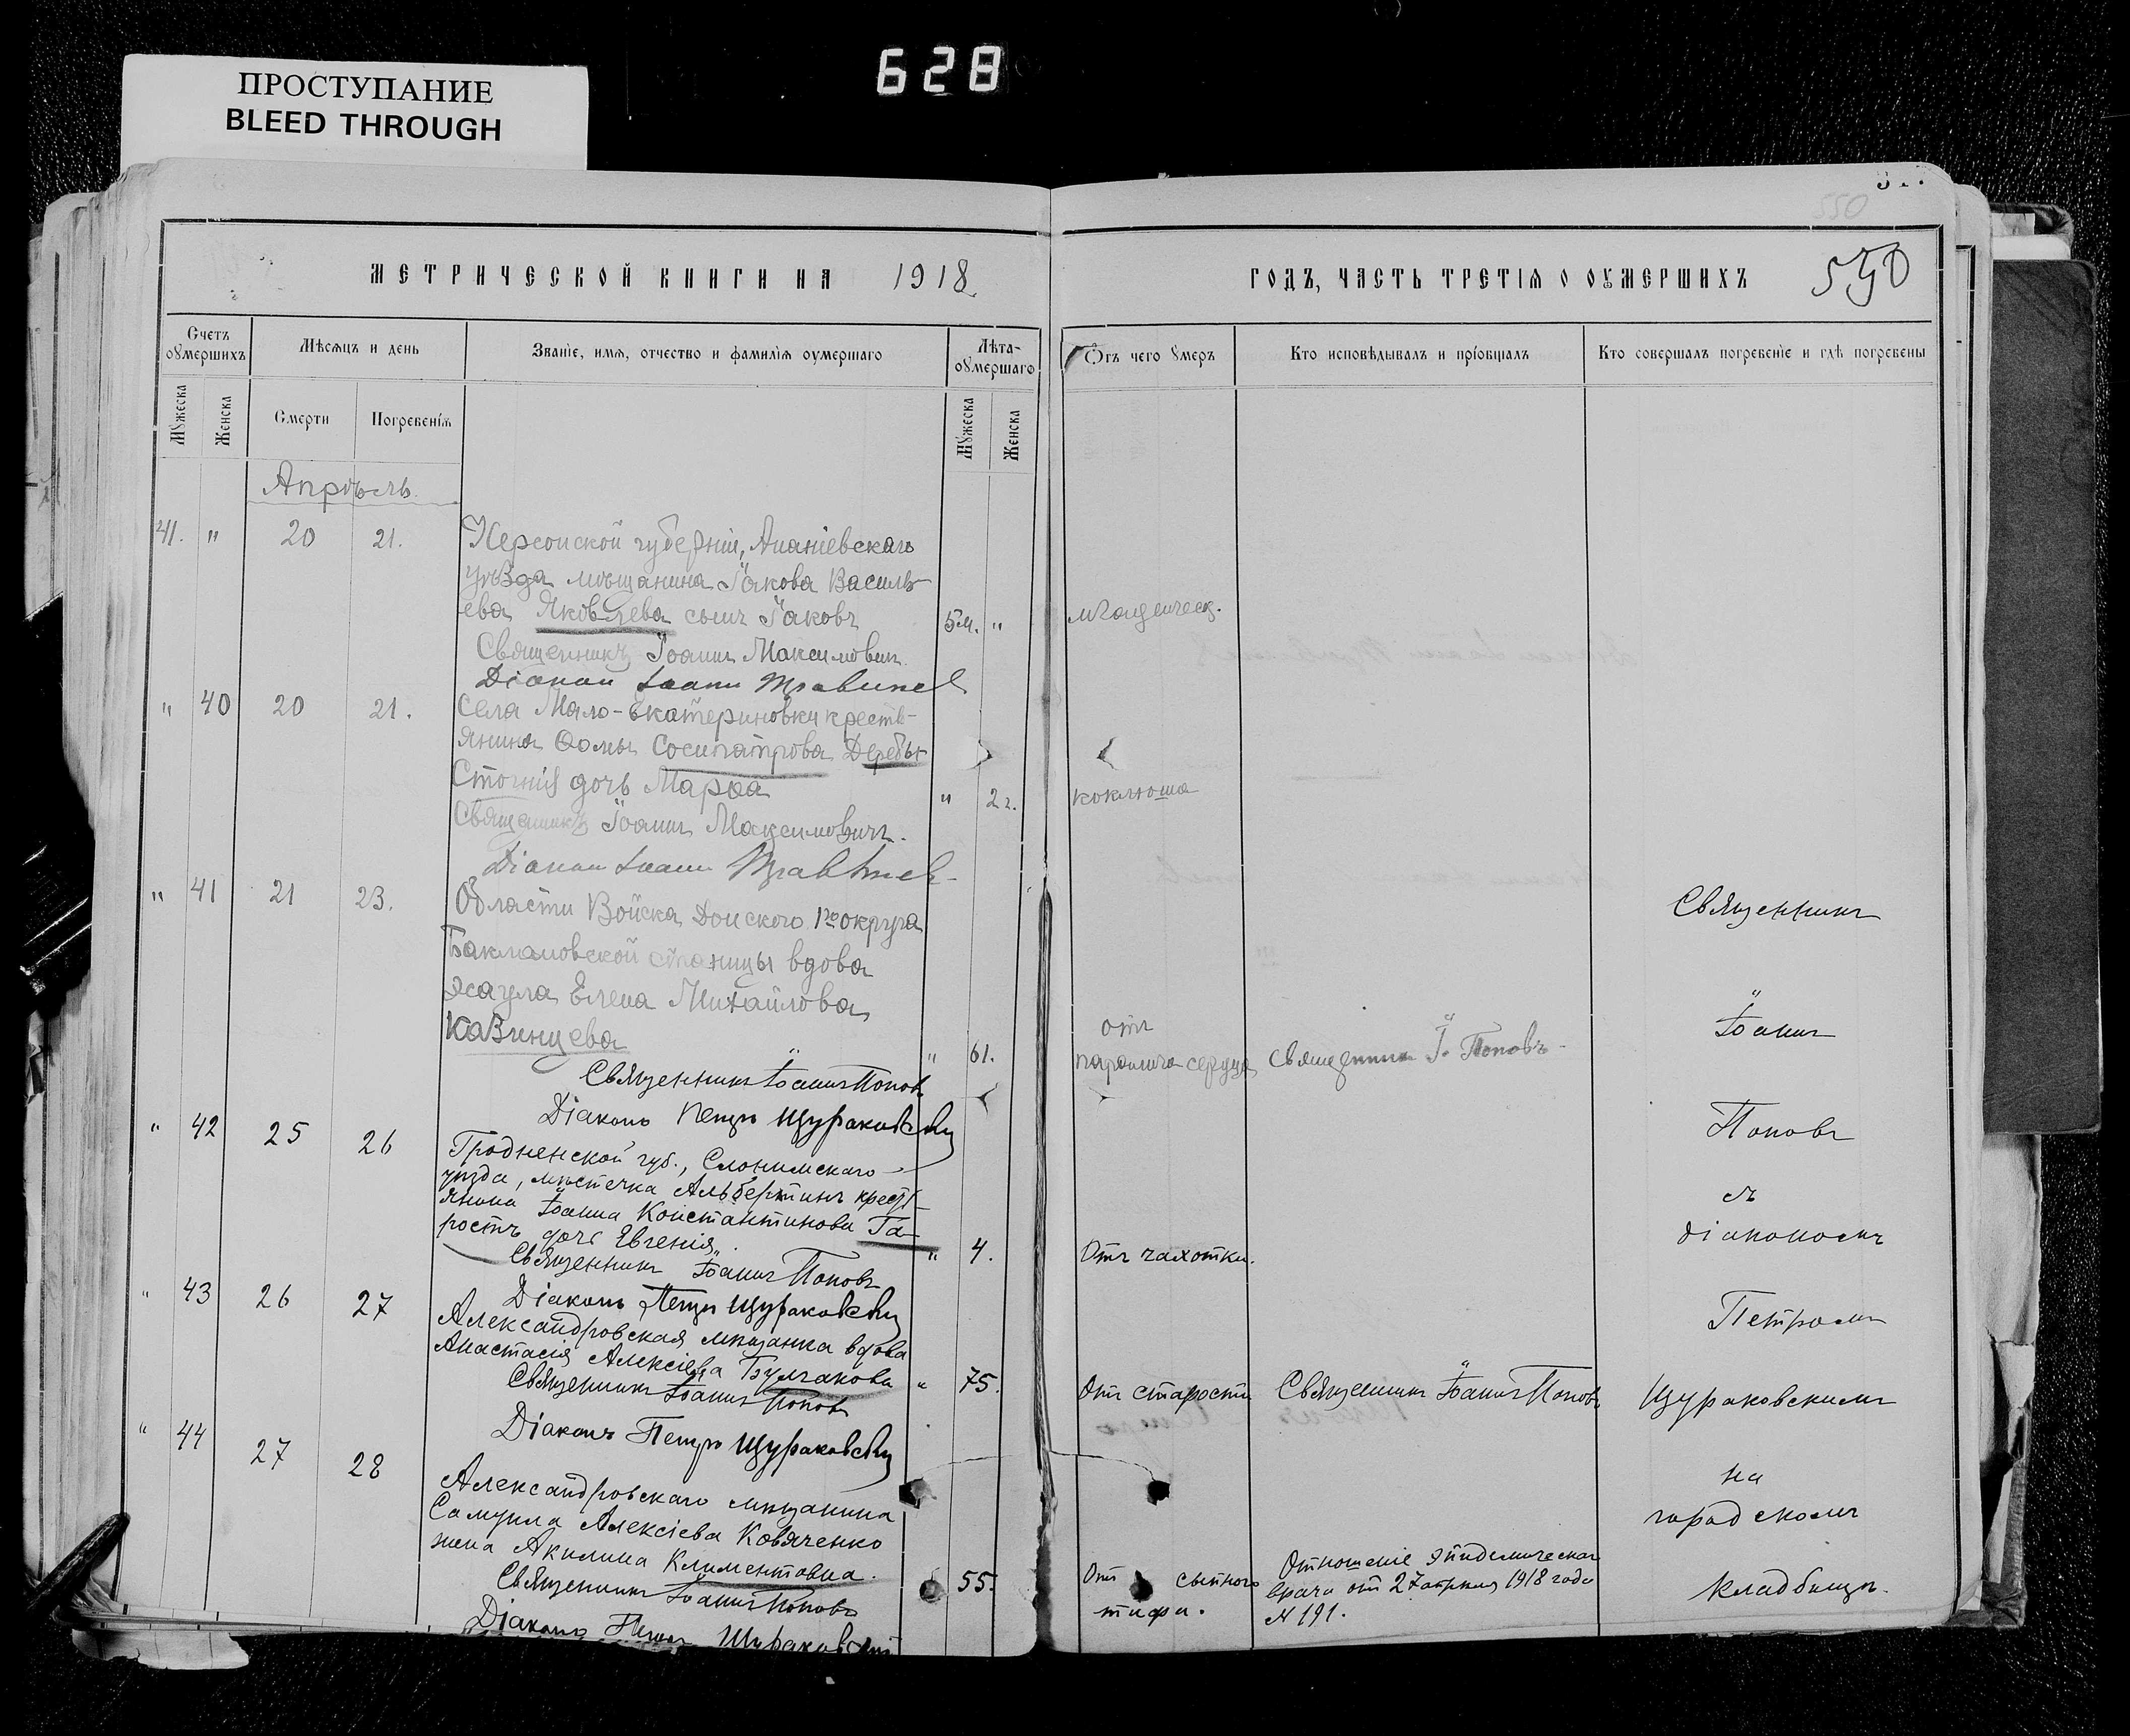 628
ПРОСТУПАНИЕ
BLEED THROUGH
550
МЕТРИЧЕСКОЙ КНИГИ НА 1918
ГОДЪ, ЧАСТЬ ТРЕТІЯ О ОУМЕРШИХЪ 550
Счетъ оумершихъ
Мѣсяцъ и день
Званіе, имя, отчество и фамилія оумершаго
Лѣта оумершаго
Отъ чего умеръ
Кто исповѣдывалъ и пріобщалъ
Кто совершалъ погребеніе и гдѣ погребены
Мужеска
Женска
Смерти
Погребенія
Мужеска
Женска
Апрѣль
41. " 20 21. Херсонской губерніи, Ананіевскаго
уѣзда мѣщанина Іакова Василь-
ева Яковлева сынъ Іаковъ 5 м. "
Священникъ Іоаннъ Максимовичъ
Діакон Іоанн
" 40 20 21. Села Мало-Екатериновки кресть-
янина Ѳомы Сосипатрова
дочь Марѳа " 2 г. коклюша
Священникъ Іоаннъ Максимовичъ.
Діакон Іоанн
" 41 21 23. Области Войска Донского 1го округа
Баклановской станицы вдова
эсаула Елена Михайлова
Казинцева " 61. отъ паралича сердца Священникъ І. Поповъ
Священникъ Іоаннъ Поповъ
Діаконъ Петръ Щураковскій
" 42 25 26 Гродненской губ., Слонимскаго
уѣзда, мѣстечка Альбертинъ кресть-
янина Іоанна Константинова Га-
ростъ дочь Евгенія. " 4. Отъ чахотки.
Священникъ Іоаннъ Поповъ
Діаконъ Петръ Щураковскій
" 43 26 27 Александровская мѣщанка вдова
Анастасія Алексіева Булгакова " 75. Отъ старости Священникъ Іоаннъ Поповъ
Священникъ Іоаннъ Поповъ
Діаконъ Петръ Щураковскій
" 44 27 28 Александровскаго мѣщанина
Самуила Алексіева Ковяченко
жена Акилина Климентовна. 55. Отъ сыпного
тифа.
Отношеніе эпидемическаго
врача от 27 апрѣля 1918 года
№ 191.
Священникъ Іоаннъ Поповъ
Діаконъ Петръ Щураковскій
Священникъ
Іоаннъ
Поповъ
съ
діакономъ
Петромъ
Щураковскимъ
на
городскомъ
кладбищѣ.